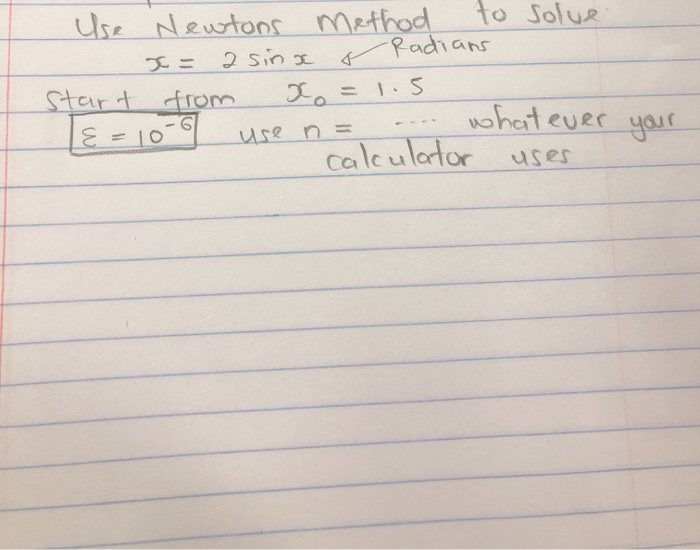 Use Newtons Method to solve
x = 2 sin x ← Radians
Start from x₀ = 1.5
ε = 10⁻⁶ use n = .... whatever your
calculator uses